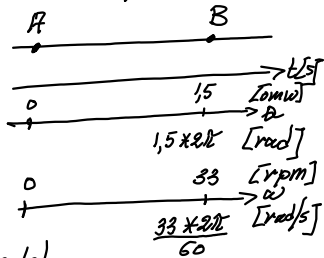 A B
t[s]
0 1,5 [omw]
1,5 *2π [rad]
0 33 [rpm]
33 *2π [rad/s]
60